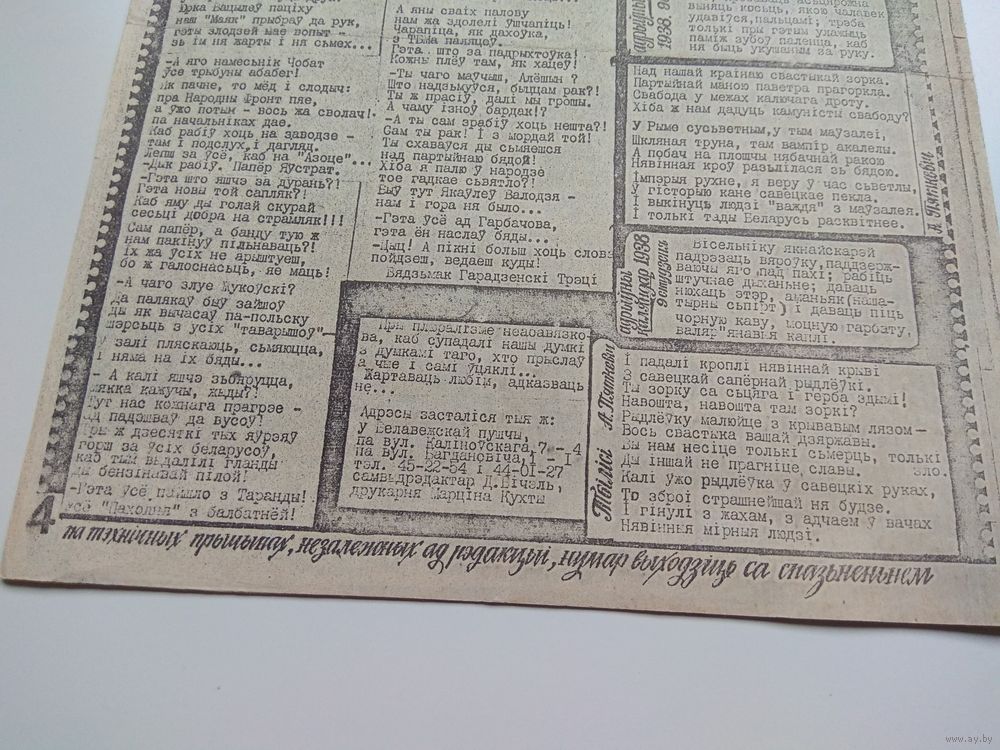 Юрка Вацылеў паціху
наш "Маяк" прыбраў да рук,
гэты злодзей мае вопыт -
зь ім ня жарты і ня сьмех...
-А яго намесьнік Чобат
ўсе трыбуны абабег!
Як пачне, то мёд і слодыч:
пра Народны Фронт пяе,
а ўжо потым - вось жа сволач!
па начальніках дае.
Каб рабіў хоць на заводзе -
там і подслух, і дагляд.
Лепш за ўсё, каб на "Азоце"...
-Дык рабіў. Папёр ўстрат.
-Гэта што яшчэ за дурань?!
Гэта новы той сапляк?!
Каб яму ды голай скурай
сесьці добра на страмляк!!!
Сам папёр, а банду тую ж
нам пакінуў пільнаваць?!
Іх жа ўсіх не арыштуеш,
бо ж галоснасьць, яе маць!
-А чаго злуе Мукоўскі?
Ды палякаў быў зайшоў
ды як вычасаў па-польску
шэрсьць з усіх "таварышоў",-
У залі пляскаюць, сьмяюцца,
і няма на іх бяды...
- А калі яшчэ зьбяруцца,
мякка кажучы, жыды?!
Тут нас кожнага прагрэе -
ад падэшваў да вусоў!
ж дзесяткі тых яўрэяў
горш за ўсіх беларусоў,
каб тым выдалілі гланды
ды бензінавай пілой!
-Гэта ўсё пайшло з Таранды!
усё "Паходня" з балбатнёй!
А яны сваіх палову
нам жа здолелі ўшчапіць!
Чарапіца, як дахоўка,
з Тыма паляцеў.
Гэта што за падрыхтоўка!
Кожны плёў там, як хацеў!
-Ты чаго маўчыш, Алёшын ?
Што надзьмуўся, быццам рак?!
Ты ж прасіў, далі мы грошы.
А чаму ізноў бардак!?
-А ты сам зрабіў хоць нешта?!
Сам ты рак! І з мордай той!
Ты схаваўся ды сьмяешся
над партыйнаю бядой!
Хіба я палю ў народзе
тое гадкае сьвятло?!
Быў тут Якаўлеў Валодзя -
нам і гора ня было...
-Гэта ўсё ад Гарбачова,
гэта ён наслаў бяды...
-Цыц! А пікні больш хоць слова
пойдзеш, ведаеш куды!
Вядзьмак Гарадзенскі Трэці
При плюралізме неабавязко-
ва, каб супадалі нашы думкі
з думкамі таго, хто прыслаў
а чые і самі ўцяклі...
Жартаваць любім, адказваць
не...
Адрэсы засталіся тыя ж:
у Белавежскай пушчы,
па вул. Каліноўскага,7 - 4
па вул. Багдановіча,1 - 1
тэл. 45-22-54 і 44-01-27
самвыдрэдактар Д.Бічэль,
друкарня Марціна Кухты
выняць косьць, якою чалавек
удавіўся,пальцамі; трэба
толькі пры гэтым улажыць
паміж зубоў паленца, каб
ня быць укушаным за руку.
1938.
Над нашай краінаю свастыкай зорка.
Партыйнай маною паветра прагоркла.
Свабода у межах калючага дроту.
Хіба ж нам дадуць камуністы свабоду?
У Рыме сусьветным,у тым маўзалеі,
Шкляная труна, там вампір акалелы.
А побач на плошчы нябачнай ракою
Нявінная кроў разьлілася зь бядою.
Імпэрыя рухне, я веру ў час сьветлы,
У гісторыю кане савецкае пекла.
І выкінуць людзі "важдя" з маўзалея.
І толькі тады Беларусь расквітнее.
А. Пяткевіч
каляндар 1938
9 студзеня
Вісельніку якнайскарэй
падрэзаць вяроўку,паддзерж-
ваючы яго пад пахі; рабіць
штучнае дыханьне; даваць
нюхаць этэр, аманьяк(наша-
тырны сьпірт) і даваць піць
чорную каву, моцную гарбату,
валяр"янавыя каплі.
Тбілісі А.Пяткевіч
І падалі кроплі нявіннай крыві
З савецкай сапёрнай рыдлёўкі.
Ты зорку са сьцяга і герба здымі!
Навошта, навошта там зоркі?
Рыдлёўку малюйце з крывавым лязом—
Вось свастыка вашай дзяржавы.
Вы нам несіце толькі сьмерць, толькі
зло.
Ды іншай не прагніце славы.
Калі ўжо рыдлёўка ў савецкіх руках,
То зброі страшнейшай ня будзе.
І гінулі з жахам, з адчаем ў вачах
Нявінныя мірныя людзі.
4
па тэхнічных прычынах, незалежных ад рэдакцыі, нумар выходзіць са спазьненьнем
www.ay.by